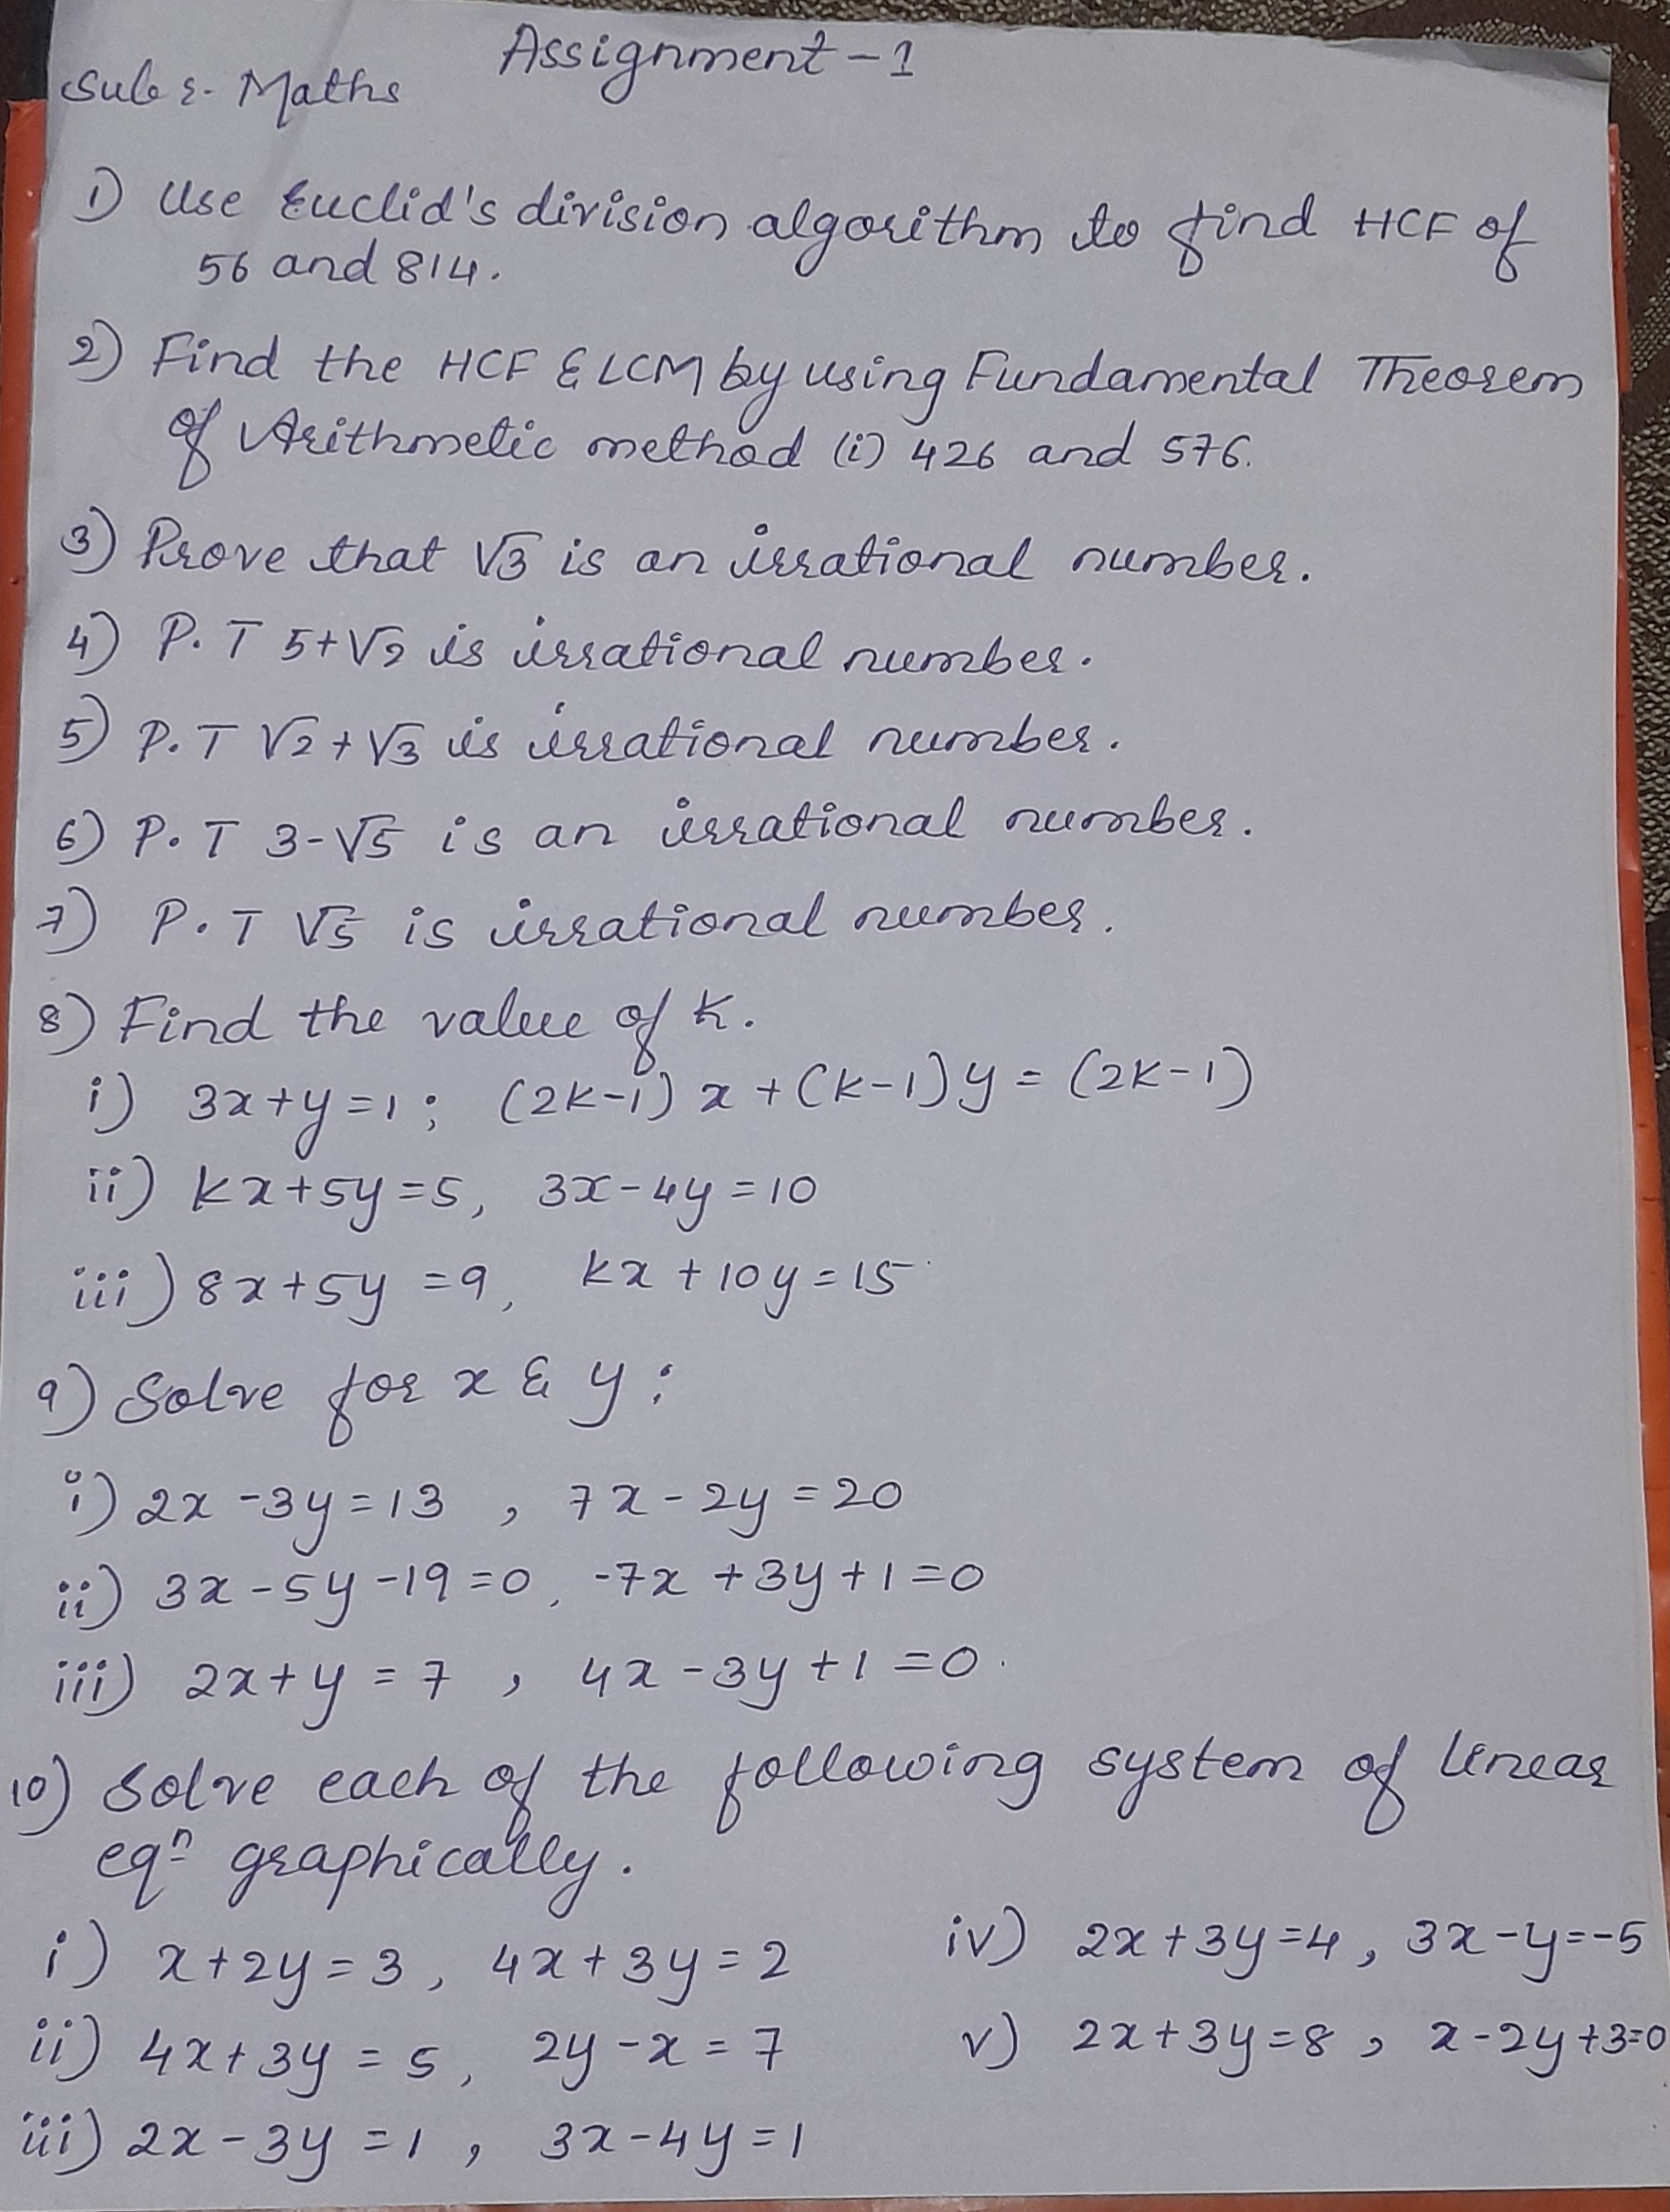 Assignment-1
Sub:- Maths
1) Use Euclid's division algorithm to find HCF of
56 and 814.
2) Find the HCF & LCM by using Fundamental Theorem
of Arithmetic method (i) 426 and 576.
3) Prove that √3 is an irrational number.
4) P.T 5+√2 is irrational number.
5) P.T √2+√3 is irrational number.
6) P.T 3-√5 is an irrational number.
7) P.T √5 is irrational number.
8) Find the value of K.
i) 3x+y=1; (2K-1)x+(K-1)y=(2K-1)
ii) Kx+5y=5, 3x-4y=10
iii) 8x+5y=9, kx+10y=15
9) Solve for x & y:
i) 2x-3y=13, 7x-2y=20
ii) 3x-5y-19=0, -7x+3y+1=0
iii) 2x+y=7, 4x-3y+1=0.
10) Solve each of the following system of linear
eqn graphically.
i) x+2y=3, 4x+3y=2
ii) 4x+3y=5, 2y-x=7
iii) 2x-3y=1, 3x-4y=1
iv) 2x+3y=4, 3x-y=-5
v) 2x+3y=8, x-2y+3=0